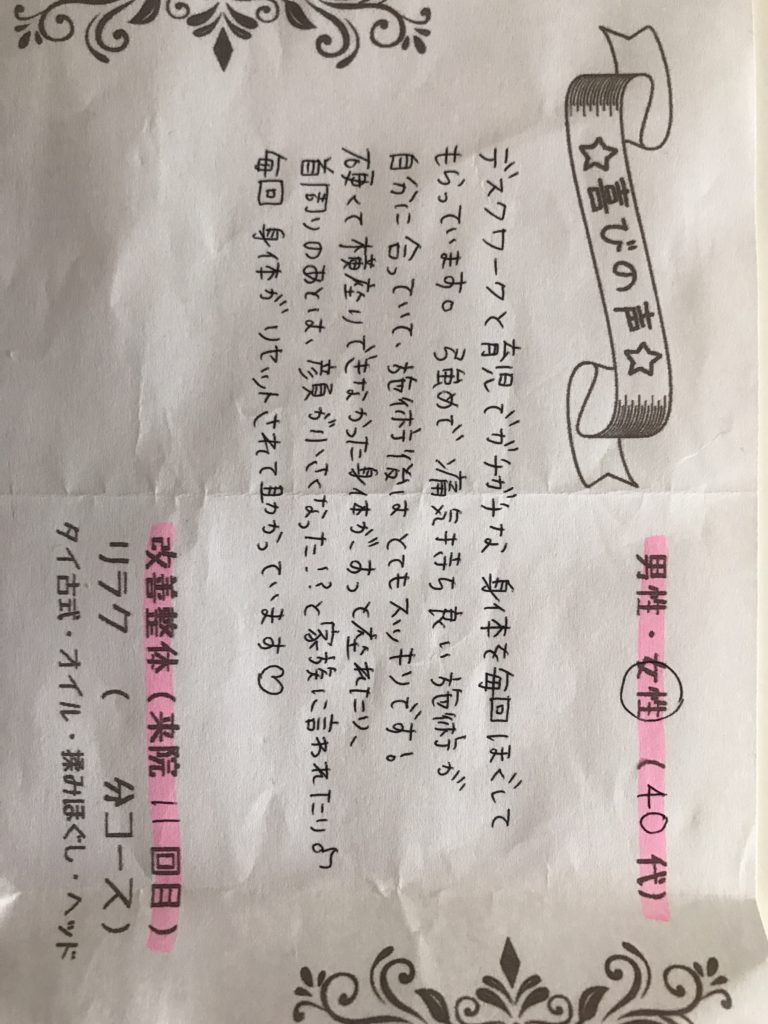 ☆喜びの声☆
男性・女性 (40代)
デスクワークと育児でガチガチな 身体を毎回ほぐして
もらっています。 強めで 痛気持ち良い施術が
自分に合っていて、施術後は とてもスッキリです!。
硬くて横座りできなかった身体が、すっと座れたり、
首周りのあとは、顔が小さくなった!?と家族に言われたり♪
毎回 身体がリセットされて助かっています♡
改善整体(来院 11回目)
リラク ( 分コース)
タイ古式・オイル・揉みほぐし・ヘッド